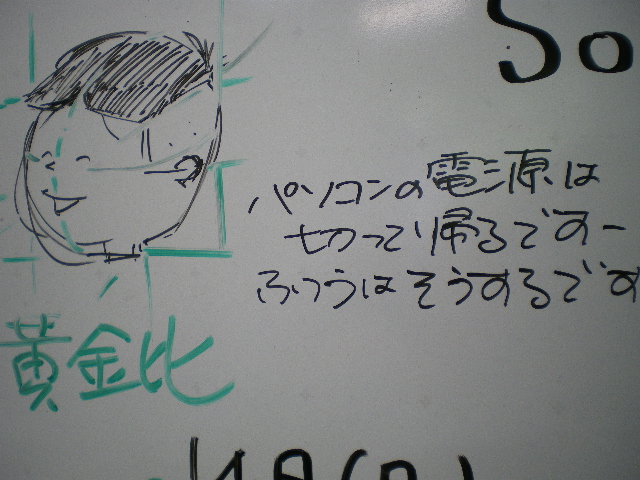 So
パソコンの電源は
切って帰るですー
ふつうはそうするです
黄金比